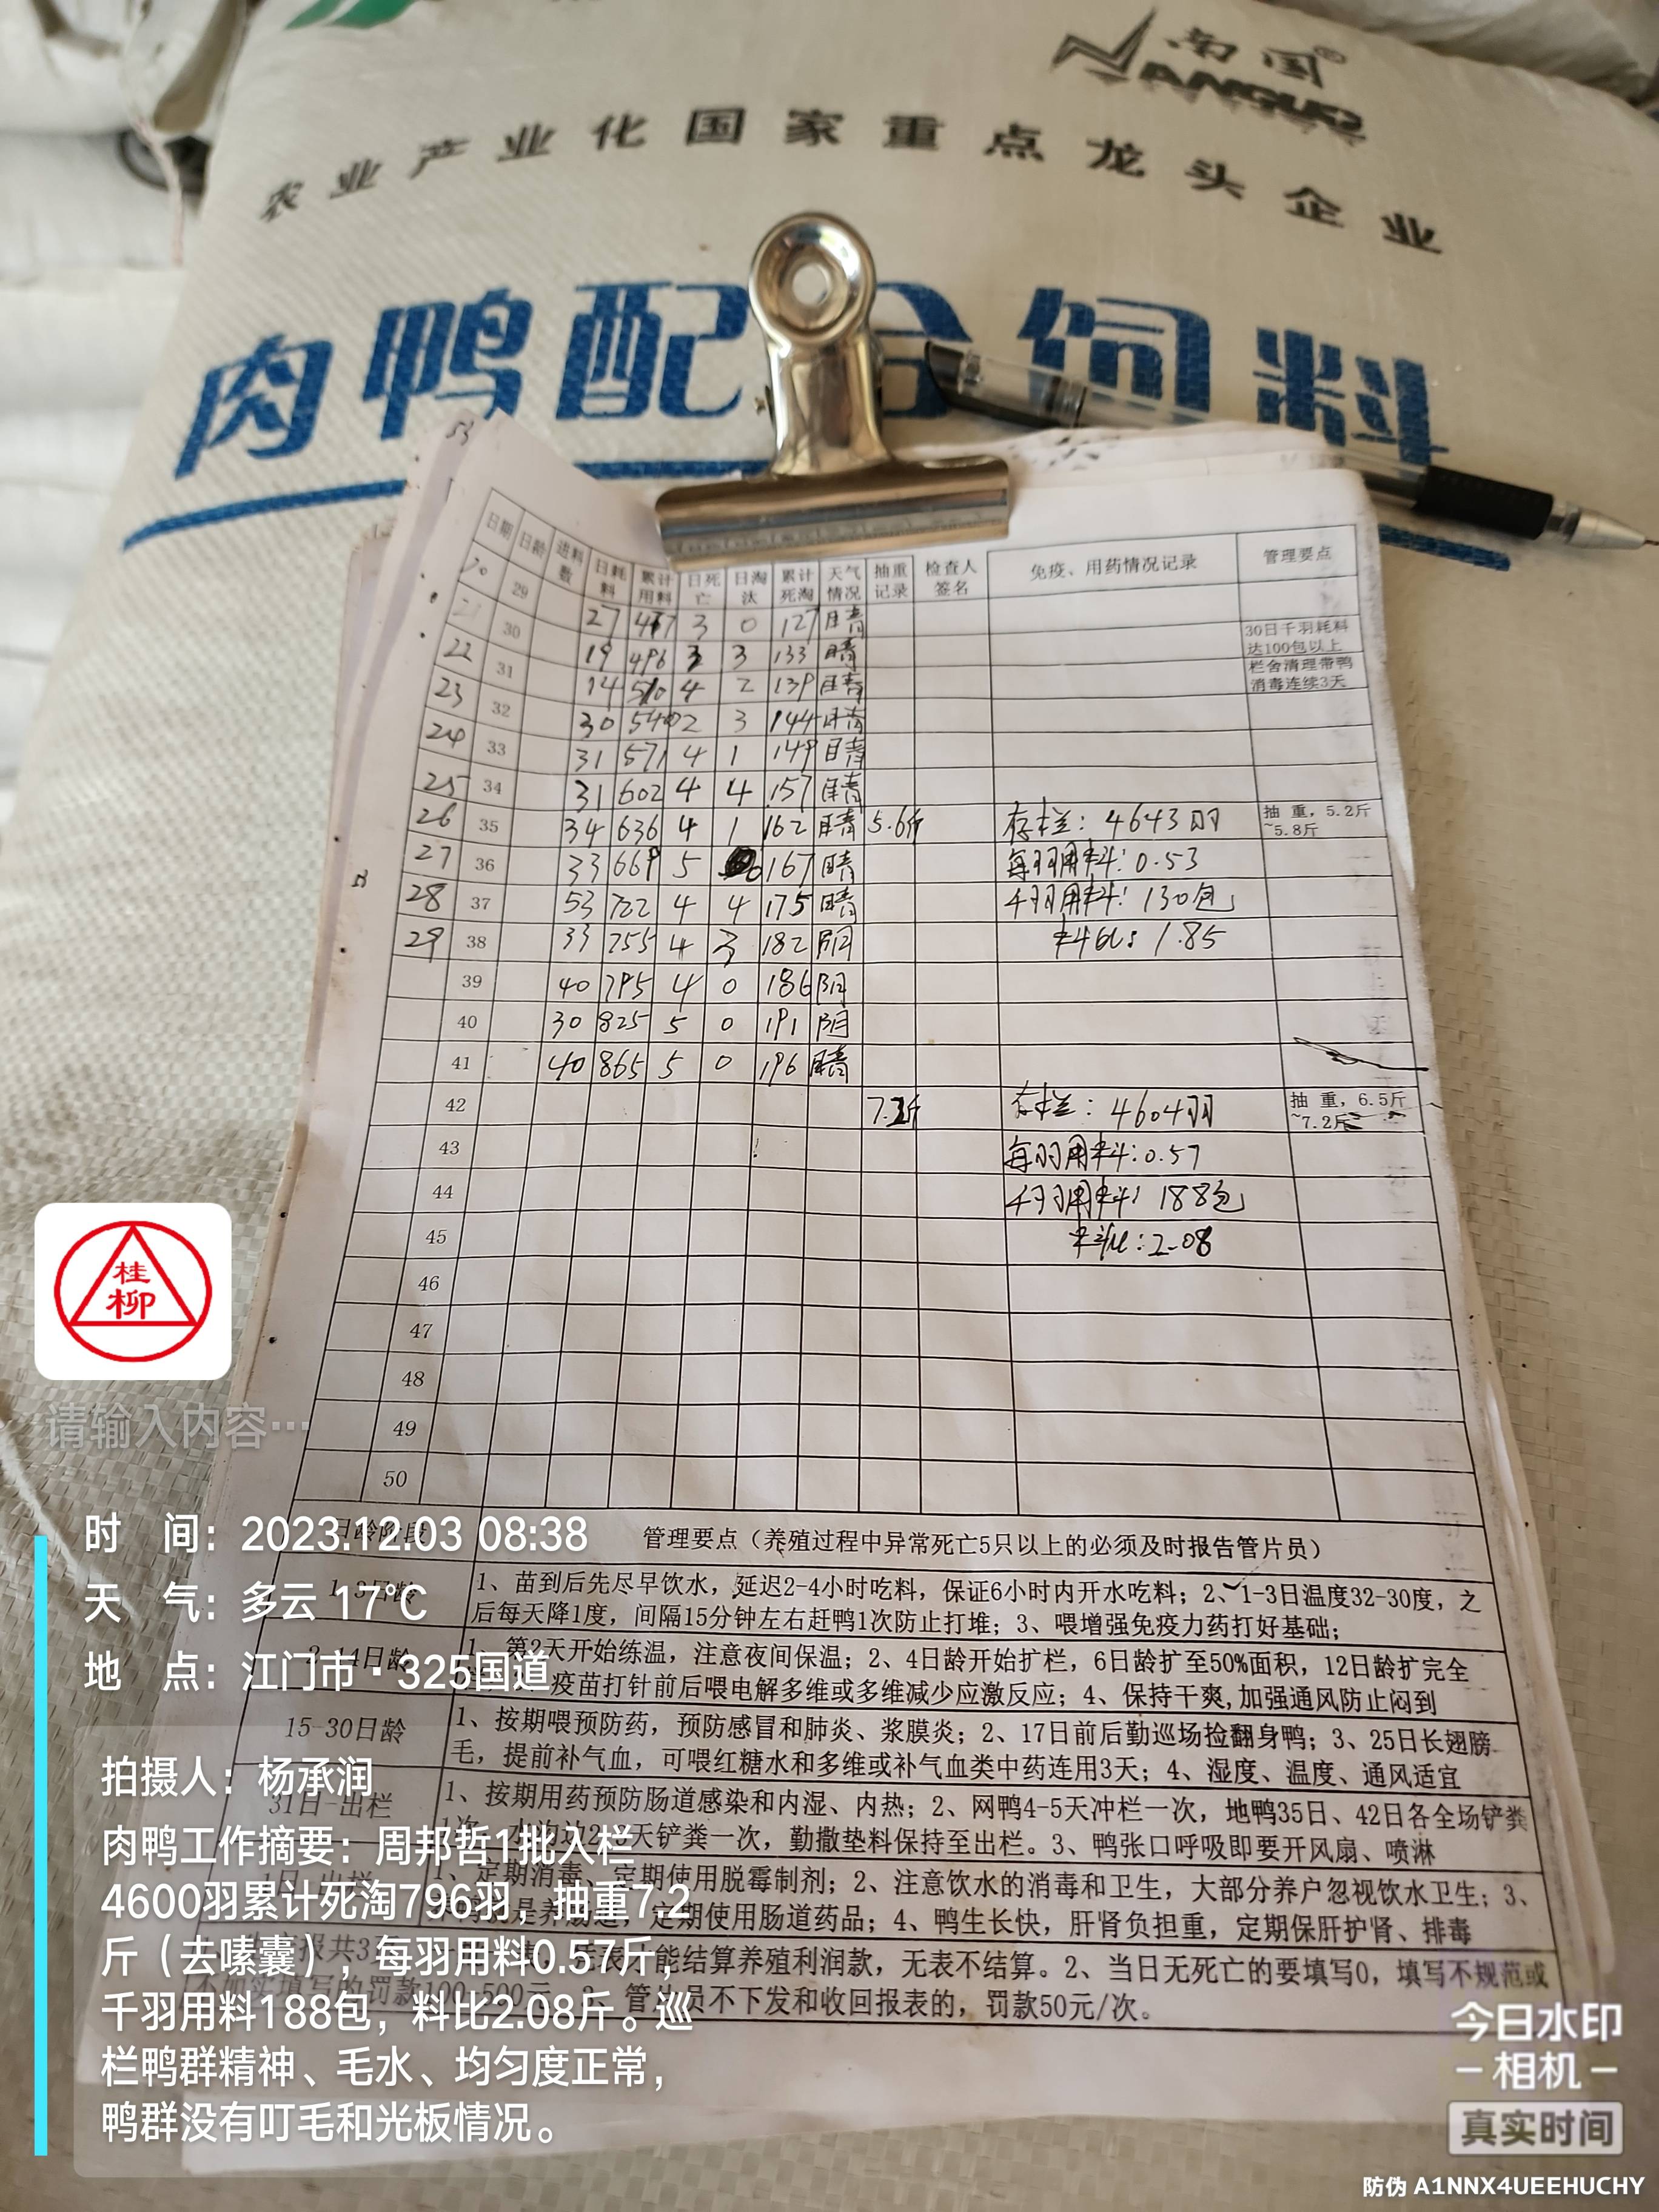 南国®
NANGUO
农业产业化国家重点龙头企业
肉鸭配合饲料
日期 日龄 进料数 日耗料 累计用料 日死亡 日淘汰 累计死淘 天气情况 抽重记录 检查人签名 免疫、用药情况记录 管理要点
20 29 27 3 0 127 晴
30 19 496 3 3 133 晴 30日千羽耗料达100包以上
22 31 14 510 4 2 139 晴 栏舍清理带鸭消毒连续3天
23 32 30 540 2 3 144 晴
24 33 31 571 4 1 149 晴
25 34 31 602 4 4 157 晴
26 35 34 636 4 1 162 晴 5.6斤 存栏：4643羽 抽 重，5.2斤~5.8斤
27 36 33 669 5 0 167 晴 每羽用料：0.53
28 37 53 722 4 4 175 晴 千羽用料：130包
29 38 33 755 4 3 182 阴 料比：1.85
39 40 795 4 0 186 阴
40 30 825 5 0 191 阴
41 40 865 5 0 196 晴
42 7.2斤 存栏：4604羽 抽 重，6.5斤~7.2斤
43 每羽用料：0.57
44 千羽用料：188包
45 料比：2.08
46
47
48
49
50
日龄阶段 管理要点（养殖过程中异常死亡5只以上的必须及时报告管片员）
1、苗到后先尽早饮水，延迟2-4小时吃料，保证6小时内开水吃料；2、1-3日温度32-30度，之
后每天降1度，间隔15分钟左右赶鸭1次防止打堆；3、喂增强免疫力药打好基础；
14日龄 1、第2天开始练温，注意夜间保温；2、4日龄开始扩栏，6日龄扩至50%面积，12日龄扩完全
疫苗打针前后喂电解多维或多维减少应激反应；4、保持干爽,加强通风防止闷到
15-30日龄 1、按期喂预防药，预防感冒和肺炎、浆膜炎；2、17日前后勤巡场捡翻身鸭；3、25日长翅膀
毛，提前补气血，可喂红糖水和多维或补气血类中药连用3天；4、湿度、温度、通风适宜
31日-出栏 1、按期用药预防肠道感染和内湿、内热；2、网鸭4-5天冲栏一次，地鸭35日、42日各全场铲粪
天铲粪一次，勤撒垫料保持至出栏。3、鸭张口呼吸即要开风扇、喷淋
1、定期消毒、定期使用脱霉制剂；2、注意饮水的消毒和卫生，大部分养户忽视饮水卫生；3、
是养肠道，定期使用肠道药品；4、鸭生长快，肝肾负担重，定期保肝护肾、排毒
无表才能结算养殖利润款，无表不结算。2、当日无死亡的要填写0，填写不规范或
不如实填写的罚款100-500元 管片员不下发和收回报表的，罚款50元/次。
桂
柳
请输入内容…
时 间：2023.12.03 08:38
天 气：多云 17℃
地 点：江门市·325国道
拍摄人：杨承润
肉鸭工作摘要：周邦哲1批入栏
4600羽累计死淘796羽，抽重7.2
斤（去嗉囊），每羽用料0.57斤，
千羽用料188包，料比2.08斤。巡
栏鸭群精神、毛水、均匀度正常，
鸭群没有叮毛和光板情况。
今日水印
相机
真实时间
防伪 A1NNX4UEEHUCHY